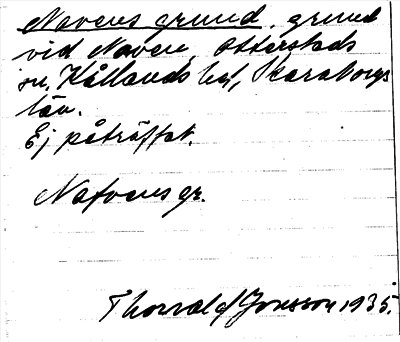 Navens grund, grund
vid Naven, Otterstads
sn, Kållands hd, Skaraborgs
län.
Ej påträffat.
Nafvens gr.
Thorvald Jonsson 1935.